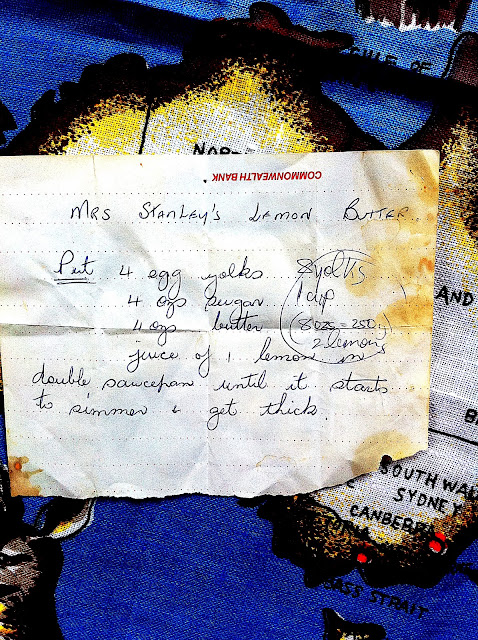 GULF OF
NORT
COMMONWEALTH BANK
MRS STANLEY'S LEMON BUTTER.
Put 4 egg yolks
4 ozs sugar
4 ozs butter
juice of 1 lemon in
double saucepan until it starts
to simmer & get thick.
8 yolks
1 cup
(8 ozs = 250g)
2 lemons
AND
SOUTH WAL
SYDNEY
CANBERRA
BASS STRAIT